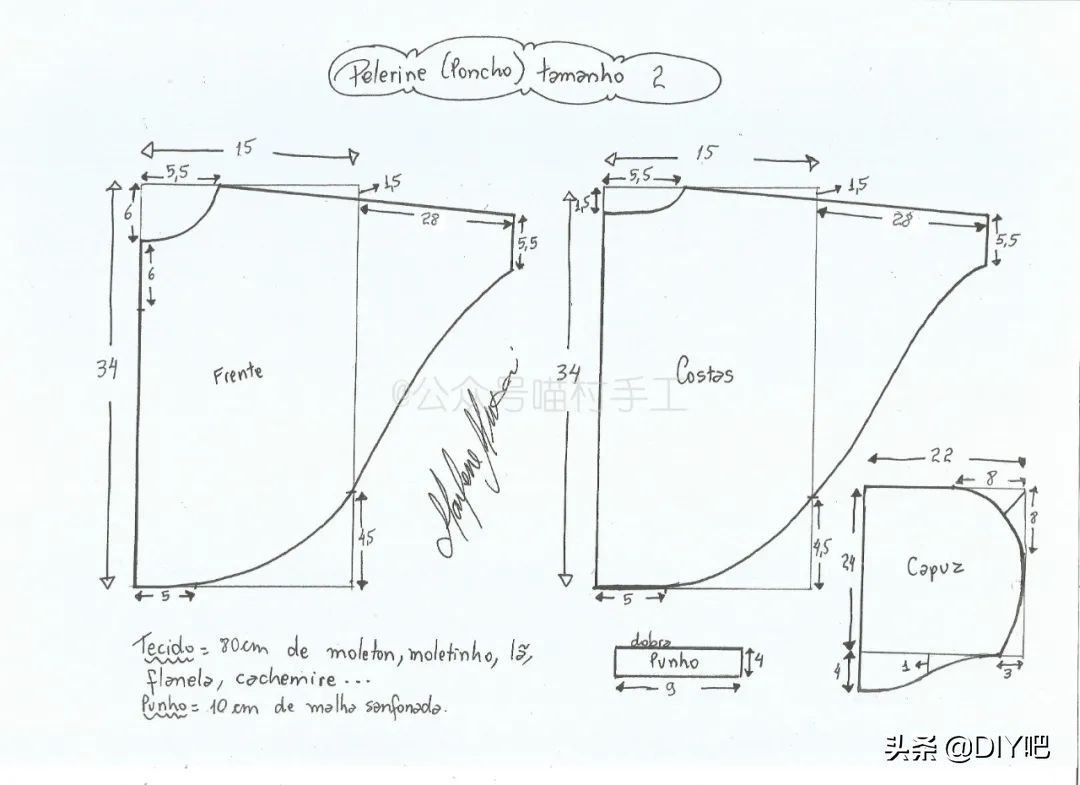 Pelerine (Poncho) tamanho 2
15
5,5
1,5
6
28
5,5
6
34
Frente
4,5
5
15
5,5
1,5
1,5
28
5,5
34
Costas
4,5
5
@公众号喵村手工
22
8
8
24
Capuz
4
1
3
dobra
Punho
4
9
Tecido = 80cm de moleton, moletinho, lã,
flanela, cachemire ...
Punho = 10 cm de malha sanfonada.
头条 @DIY吧